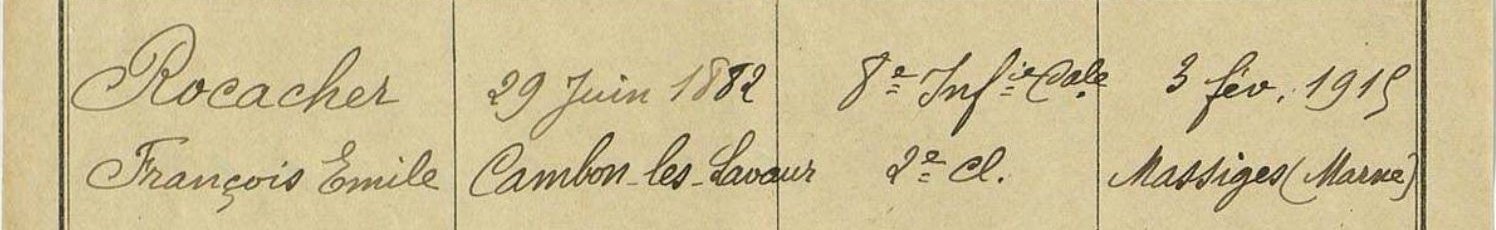 Rocacher 29 Juin 1882 8e Infie Cale 3 fév. 1915
François Emile Cambon-les-Lavaur 2e cl. Massiges (Marne)